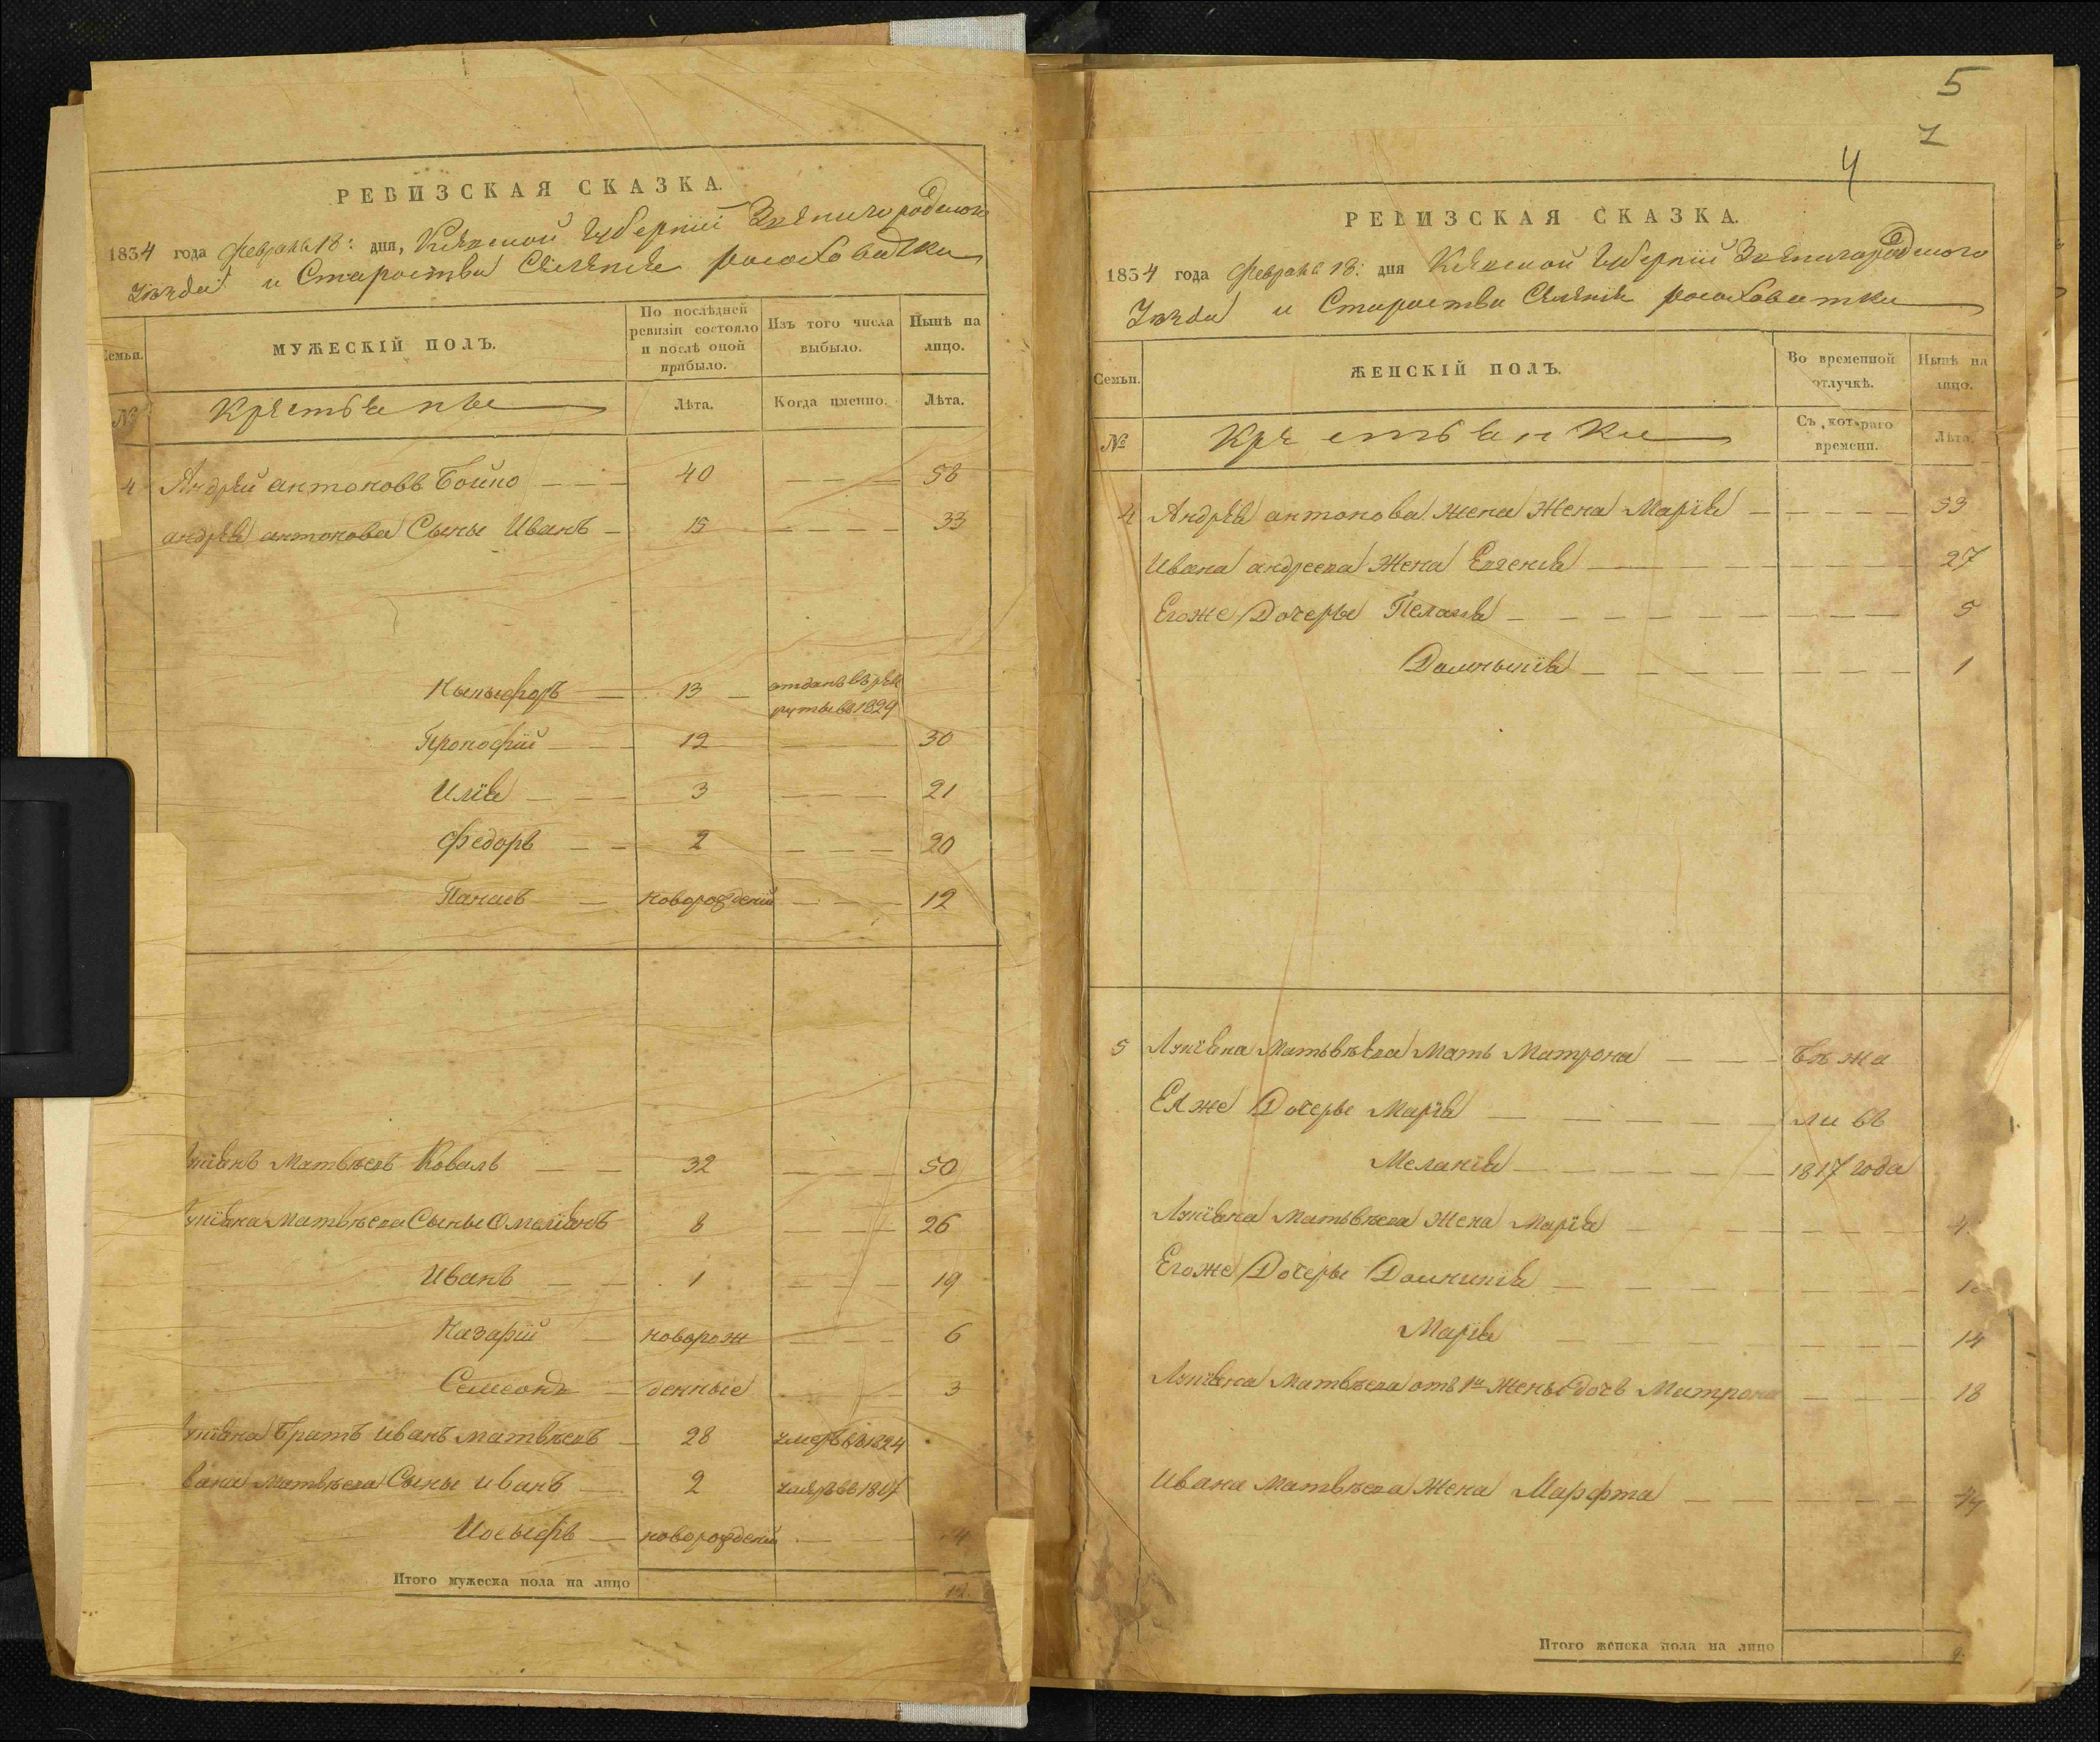 РЕВИЗСКАЯ СКАЗКА.
1834 года февраля 18: дня, Кіевской Губерніи Звенигородского
Уѣзда и Староства Селеніе росоховатки
Семьи.
МУЖЕСКІЙ ПОЛЪ.
По послѣдней ревизіи состояло и послѣ оной прибыло.
Изъ того числа выбыло.
Нынѣ на лицо.
№
Крестьяне
Лѣта.
Когда именно.
Лѣта.
4 Андрей антоновъ Бойко 40 58
андрея антонова Сыны Иванъ 15 33
Никыфоръ 13 отданъ въ рек
руты въ 1829
Прокофій 12 30
Илія 3 21
Федоръ 2 20
Панасъ новорожденій 12
Матвѣевъ Коваль 32 50
Матвѣева Сыны Омеліянъ 8 26
Иванъ 1 19
Назарій новорож 6
Семеонъ денные 3
Братъ Иванъ Матвѣевъ 28 умеръ въ 1824
Матвѣева Сыны иванъ 2 умеръ въ 1817
Иосыфъ новорожденій
Итого мужеска пола на лицо 12.
5
7
4
РЕВИЗСКАЯ СКАЗКА.
1834 года февраля 18: дня Кіевской Губерніи Звенигородского
Уѣзда и Староства Селеніе росоховатки
Семьи.
ЖЕНСКІЙ ПОЛЪ.
Во временной отлучкѣ.
Нынѣ на лицо.
№
Крестьянки
Съ котораго времени.
Лѣта.
4 Андрея антонова жена жена Марія 53
Ивана андреева Жена Евгенія 27
Егоже Дочеры Пелагія 5
Домныкія 1
5 Лукіяна Матьвѣева Мать Матрона бѣжа
Ея же Дочеры Марія ли въ
Меланія 1817 года
Лукіяна Матьвѣева Жена Марія
Егоже Дочеры Домникія
Марія 14
Лукіяна Матвѣева отъ 1й Жены дочь Матрона 18
Ивана Матвѣева Жена Марфта
Итого женска пола на лицо 9.